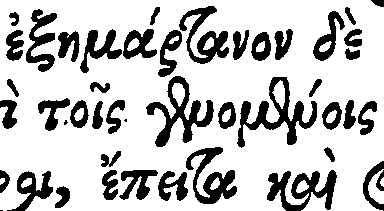 ἐξημάρτανον δὲ
τοῖς γενομένοις
ἔπειτα καὶ